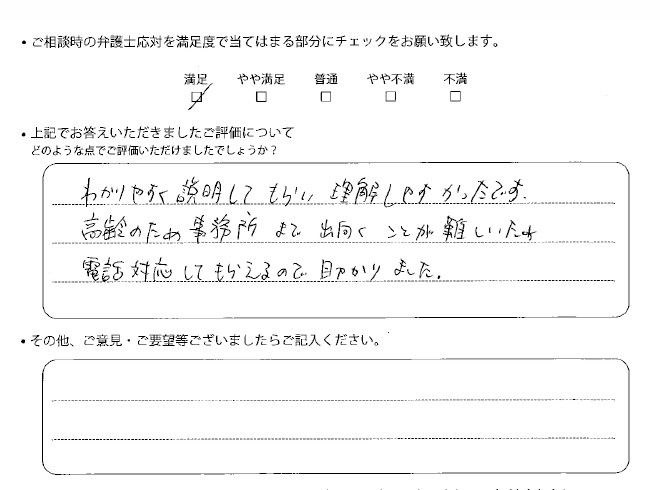 ・ご相談時の弁護士応対を満足度で当てはまる部分にチェックをお願い致します。
満足 やや満足 普通 やや不満 不満
☑ □ □ □ □
・上記でお答えいただきましたご評価について
どのような点でご評価いただけましたでしょうか？
わかりやすく説明してもらい理解しやすかったです。
高齢のため事務所まで出向くことが難しいため
電話対応してもらえるので助かりました。
・その他、ご意見・ご要望等ございましたらご記入ください。